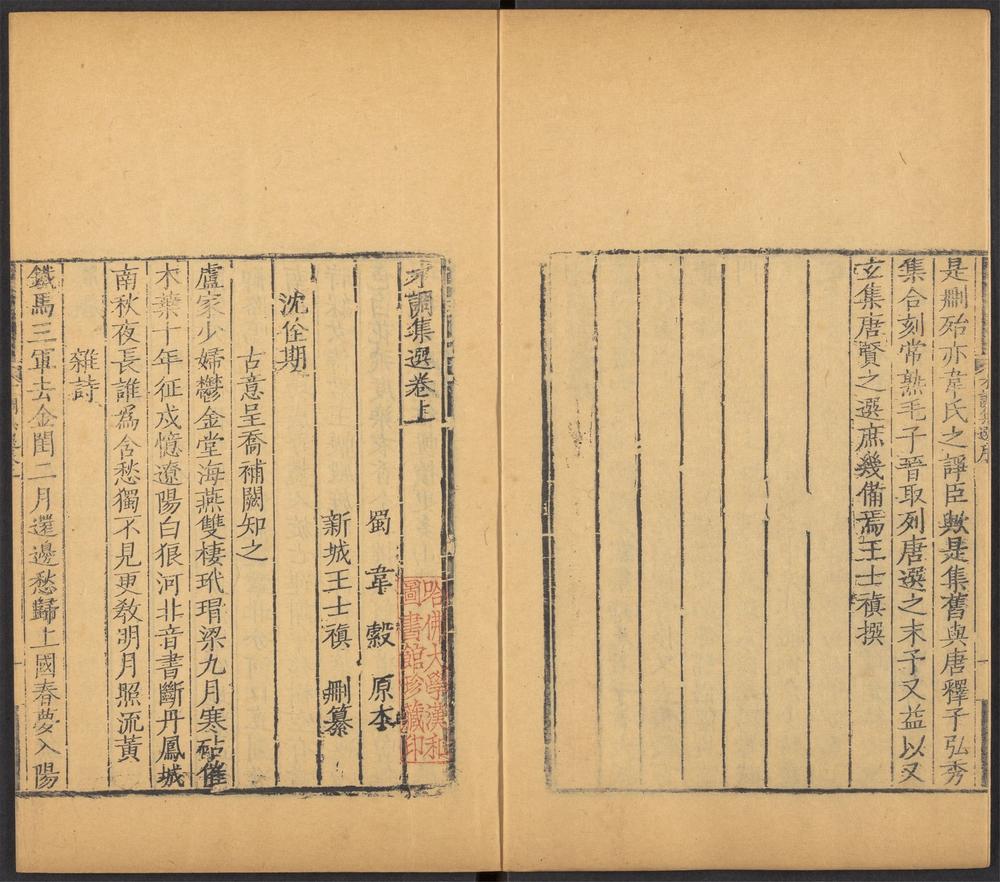 是刪殆亦韋氏之諍臣歟是集舊與唐釋子弘秀
集合刻常熟毛子晉取列唐選之末予又益以又
玄集唐賢之選庶幾備焉王士禛撰
才調集選序
才調集選卷上
哈佛大學漢和
圖書館珍藏印
蜀韋縠原本
新城王士禛刪纂
沈佺期
古意呈喬補闕知之
盧家少婦鬱金堂海燕雙棲玳瑁梁九月寒砧催
木葉十年征戍憶遼陽白狼河北音書斷丹鳳城
南秋夜長誰為含愁獨不見更敎明月照流黃
雜詩
鐵馬三軍去金閨二月還邊愁歸上國春夢入陽